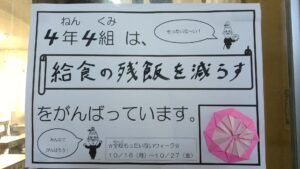 ねん くみ
4年4組は、
もったいな～い！
給食の残飯を減らす
をがんばっています。
みんなで
がんばろう！
☆全校もったいないウィーク☆
10/16（月）～10/27（金）